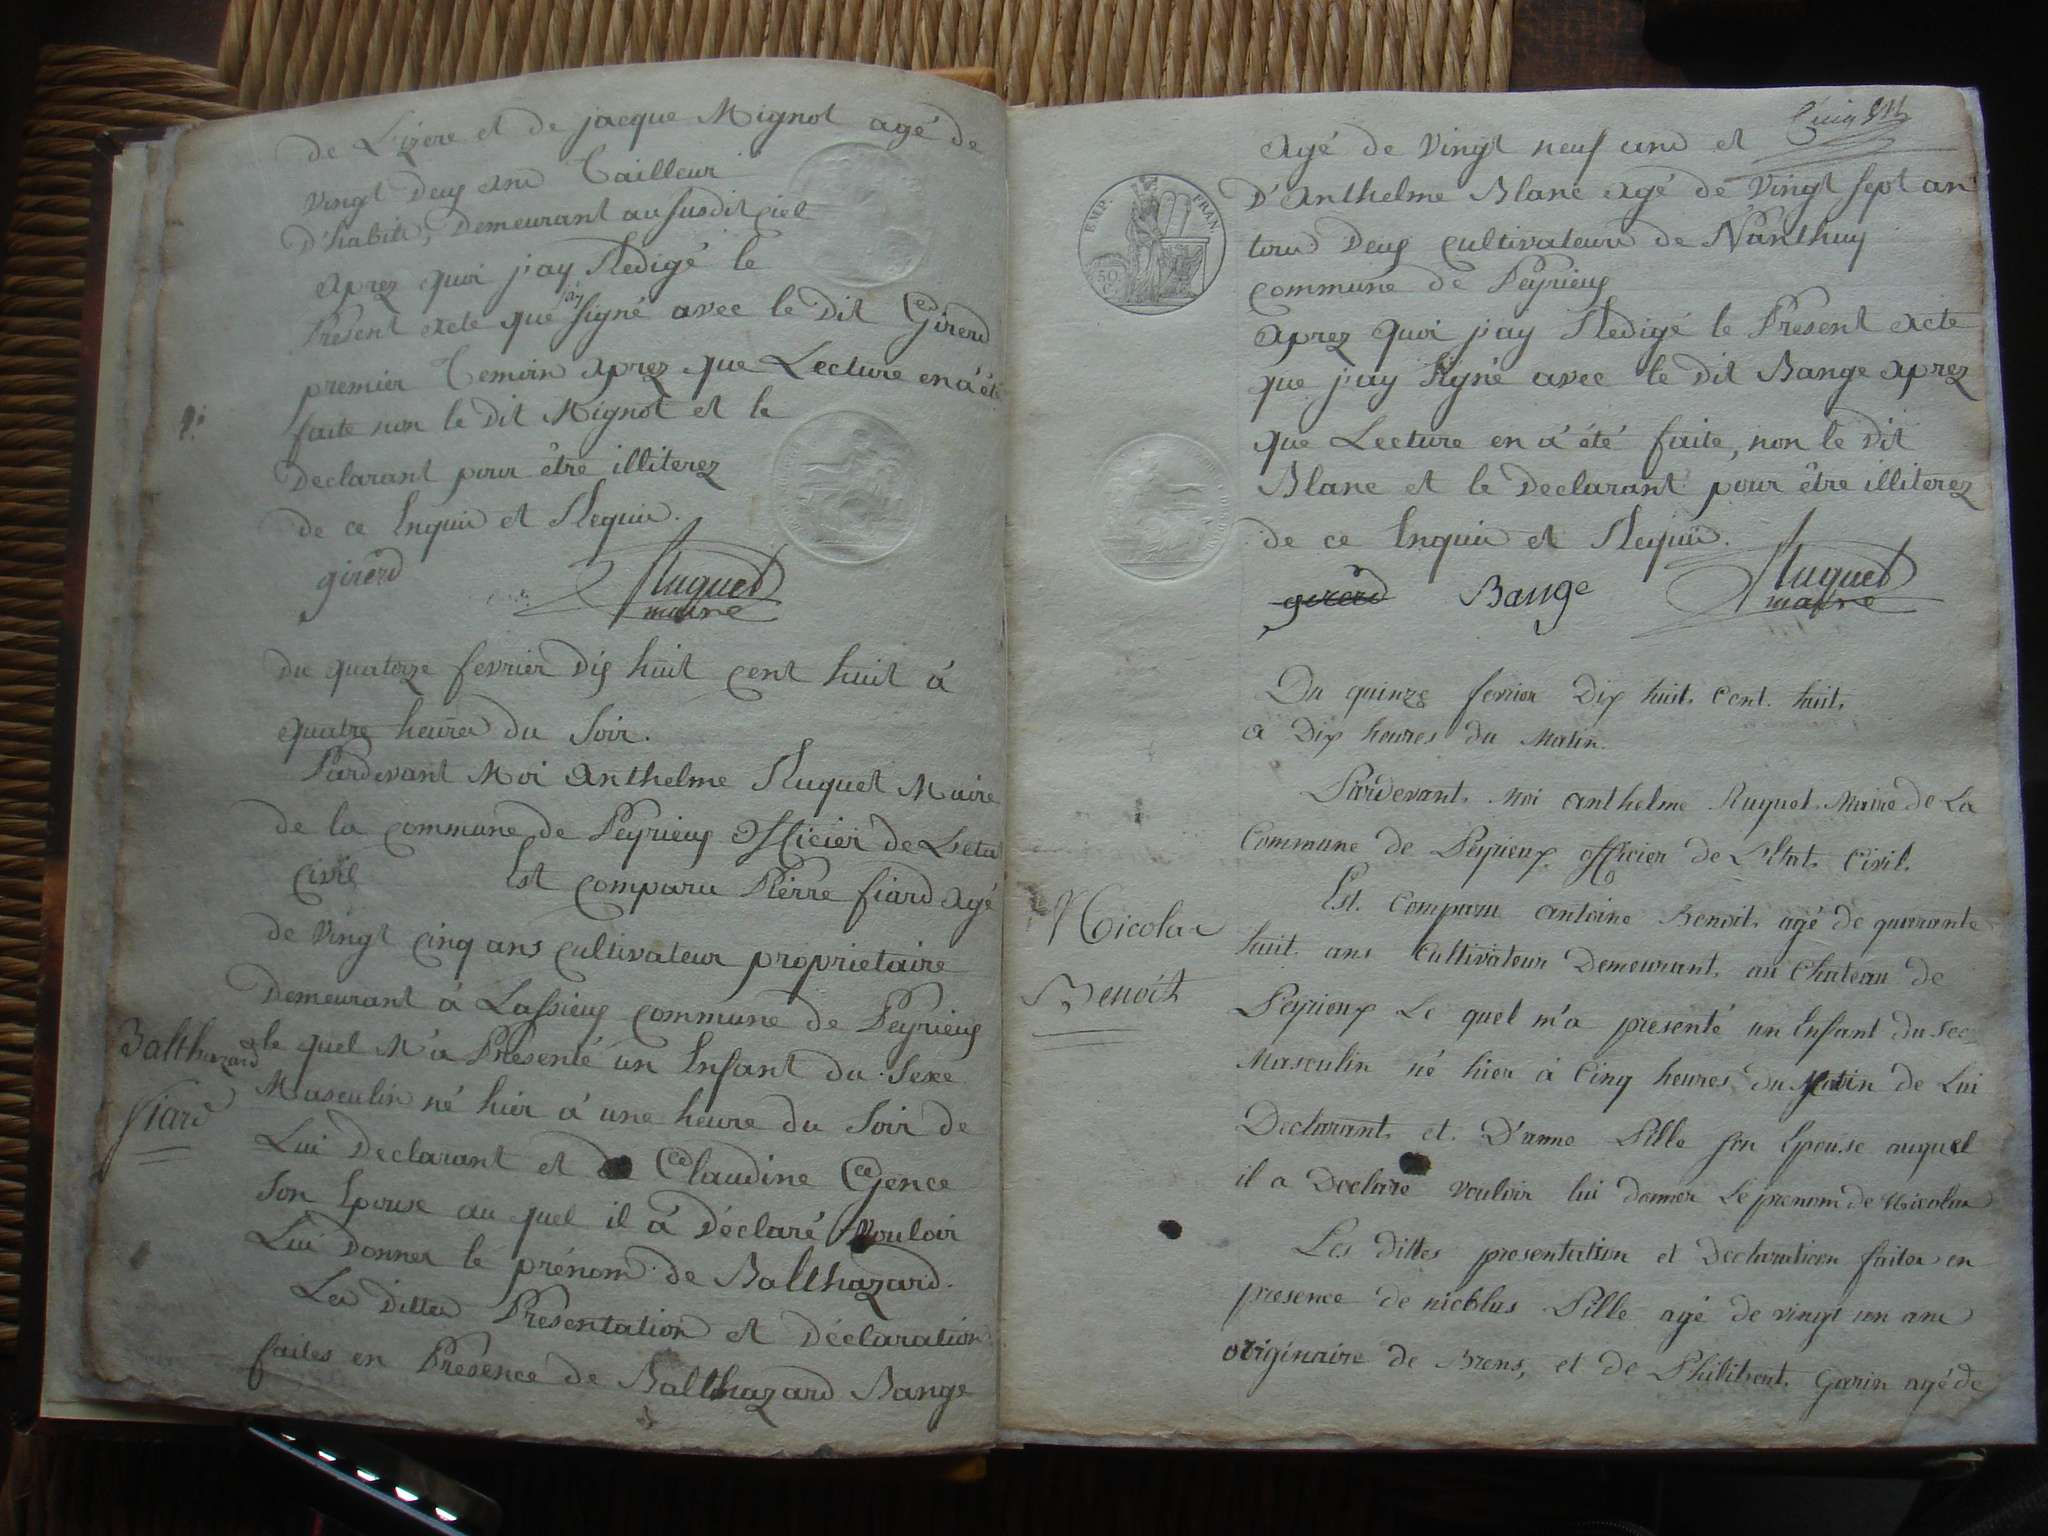 de Lizere et de jacque Mignot agé de
Vingt Deux ans Tailleur
D'habits, Demeurant au susdit
aprez quoi j'ay Redigé le
Present acte que j'ay signé avec le Dit Girerd
premier Temoin aprez que Lecture en a été
faite non le Dit Mignot et le
Declarant pour être illiterez
de ce Enquis et Requis.
girerd Ruquet
maire
Du quatorze fevrier Dix huit cent huit à
quatre heures du Soir.
Pardevant Moi Anthelme Ruquet Maire
de la commune de Peyrieux Officier de Letat
Civil Est comparu Pierre fiard agé
de Vingt cinq ans cultivateur proprietaire
Demeurant à Lassieux commune de Peyrieux
le quel M'a Presenté un Enfant du Sexe
Masculin né hier à une heure du Soir de
Lui Declarant et de Claudine Gence
Son Epouse au quel il à Déclaré Vouloir
Lui Donner le prénom de Balthazard.
Les Dittes Presentation et Déclaration
faites en Presence de Balthazard Bange
Balthazard
fiard
Cinq
agé de Vingt neuf ans et
D'Anthelme Blanc agé de Vingt Sept an
tous Deux cultivateurs de Nanthuy
commune de Peyrieux
aprez quoi j'ay Redigé le Present acte
que j'ay Signé avec le dit Bange aprez
que Lecture en a été faite, non le Dit
Blanc et le Declarant pour être illiterez
de ce Enquis et Requis.
girerd Bange Ruquet
maire
EMP. FRAN.
50 C.
Du quinze fevrier Dix huit Cent huit
a Dix heures du Matin.
Pardevant Moi anthelme Ruquet Maire de La
Commune de Peyrieux officier de L'Etat Civil.
Est Comparu antoine Benoit agé de quarante
huit ans Cultivateur Demeurant au Chateau de
Peyrieux Le quel m'a presenté un Enfant du Sec
Masculin né hier à Cinq heures du Matin de Lui
Declarant et D'anne Pille son Epouse auquel
il a Declaré vouloir lui donner Le prenom de Nicolas
Les dittes presentation et Declaration faites en
presence de nicolas Pille agé de vingt un ans
originaire de Brens, et de Philibert Garin agé de
Nicolas
Benoit